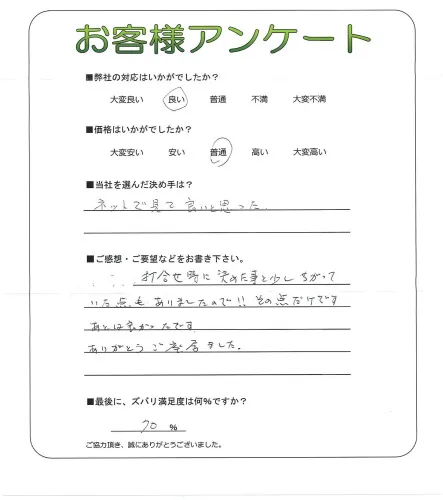 お客様アンケート
■弊社の対応はいかがでしたか?
大変良い 良い 普通 不満 大変不満
■価格はいかがでしたか?
大変安い 安い 普通 高い 大変高い
■当社を選んだ決め手は?
ネットで見て良いと思った.
■ご感想・ご要望などをお書き下さい。
打合せ時に決めた事と少しちがって
いた点もありましたので!! その点だけです
あとは良かったです.
ありがとうご座居ました。
■最後に、ズバリ満足度は何%ですか?
70 %
ご協力頂き、誠にありがとうございました。